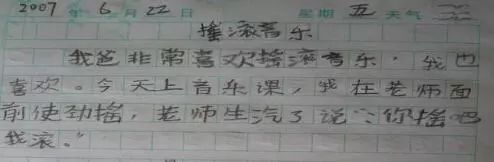 2007年6月22日 星期五 天气
摇滚音乐
我爸非常喜欢摇滚音乐，我也
喜欢。今天上音乐课，我在老师面
前使劲摇，老师生汽了说：“你摇吧
我滚。”